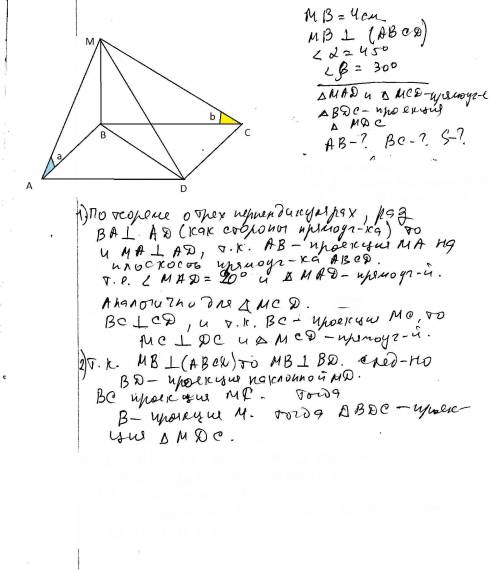 MB = 4см
MB ⊥ (ABCD)
∠α = 45°
∠β = 30°
△MAD и △MCD-прямоуг-е
△BDC - проекция
△MDC
AB-? BC-? S-?
M
b
B
C
a
A
D
1) По теореме о трех перпендикулярах, раз
BA ⊥ AD (как стороны прямоуг-ка) то
и MA ⊥ AD, т.к. AB - проекция MA на
плоскость прямоуг-ка ABCD.
т.е. ∠MAD = 90° и △MAD - прямоуг-й.
Аналогично для △MCD.
BC ⊥ CD, и т.к. BC - проекция MC, то
MC ⊥ DC и △MCD - прямоуг-й.
2) т.к. MB ⊥ (ABCD) то MB ⊥ BD. след-но
BD - проекция наклонной MD.
BC проекция MC. тогда
B - проекция M. тогда △BDC - проек-
ция △MDC.